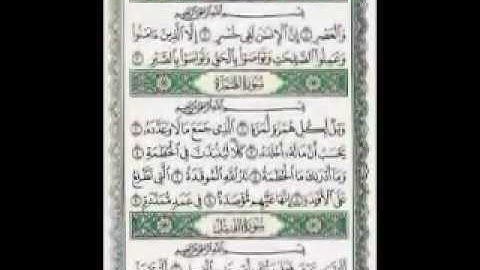 بسم الله الرحمن الرحيم
والعصر ۝ إن الإنسن لفى خسر ۝ إلا الذين ءامنوا
وعملوا الصلحت وتواصوا بالحق وتواصوا بالصبر ۝
سورة الهمزة
بسم الله الرحمن الرحيم
ويل لكل همزة لمزة ۝ الذى جمع مالا وعدده ۝
يحسب أن ماله أخلده ۝ كلا لينبذن فى الحطمة ۝
وما أدرىك ما الحطمة ۝ نار الله الموقدة ۝ التى تطلع
على الأفدة ۝ إنها عليهم مؤصدة ۝ فى عمد ممددة ۝
سورة الفيل
بسم الله الرحمن الرحيم